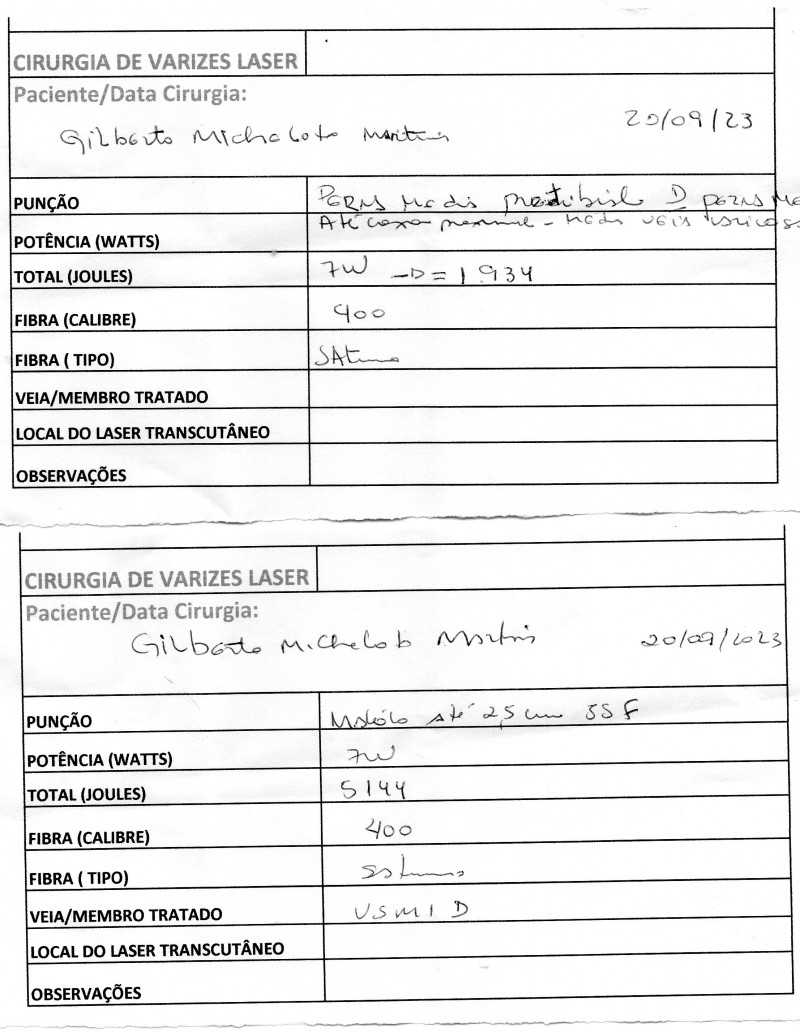 CIRURGIA DE VARIZES LASER
Paciente/Data Cirurgia:
Gilberto Micheloto Martins 20/09/23
PUNÇÃO Perna Media pretibial D perna Me
Até coxa proximal - veia
POTÊNCIA (WATTS)
TOTAL (JOULES) 7W -D = 1934
FIBRA (CALIBRE) 400
FIBRA ( TIPO) Saturno
VEIA/MEMBRO TRATADO
LOCAL DO LASER TRANSCUTÂNEO
OBSERVAÇÕES
CIRURGIA DE VARIZES LASER
Paciente/Data Cirurgia:
Gilberto Micheloto Martins 20/09/2023
PUNÇÃO Maléolo até 2,5 cm
POTÊNCIA (WATTS) 7W
TOTAL (JOULES) 5144
FIBRA (CALIBRE) 400
FIBRA ( TIPO) Saturno
VEIA/MEMBRO TRATADO VSMI D
LOCAL DO LASER TRANSCUTÂNEO
OBSERVAÇÕES